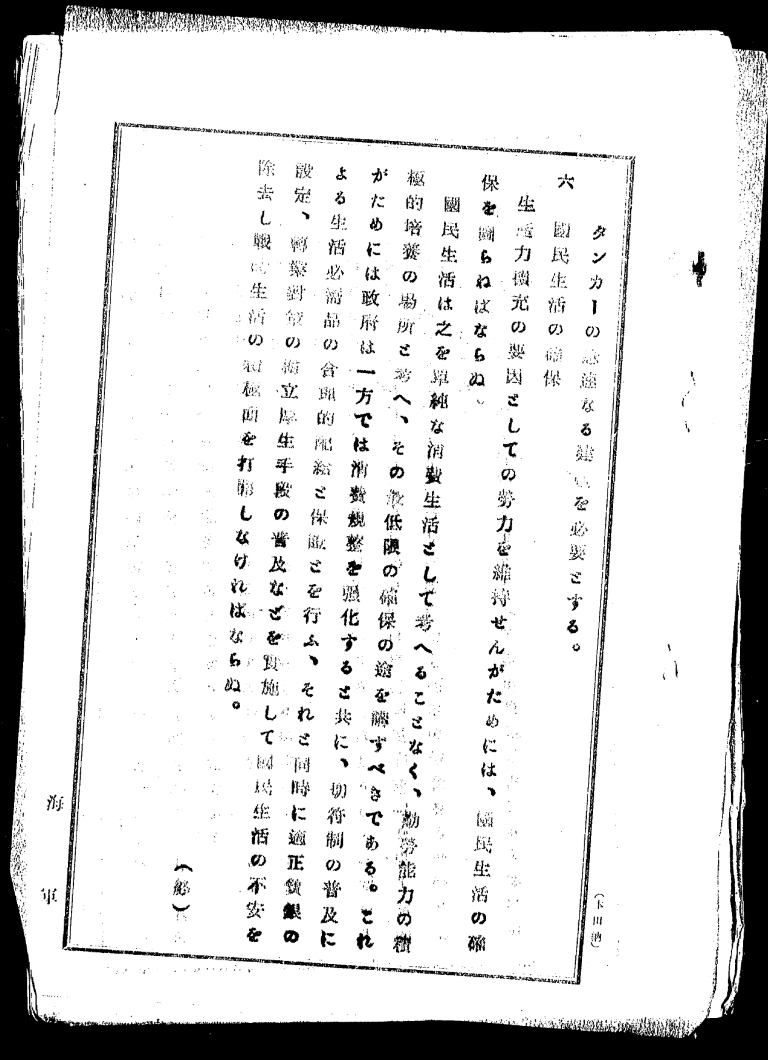 タンカーの急速なる建造を必要とする。
六　國民生活の確保
生産力擴充の要因としての勞力を維持せんがためには、國民生活の確
保を圖らねばならぬ。
國民生活は之を單純な消費生活として考へることなく、勤勞能力の積
極的培養の場所と考へ、その最低限の確保の途を講すべきである。これ
がためには政府は一方では消費規整を强化すると共に、切符制の普及に
よる生活必需品の合理的配給と保證とを行ふ、それと同時に適正賃銀の
設定、轉業對策の樹立厚生手段の普及などを實施して國民生活の不安を
除去し戰時生活の積極面を打開しなければならぬ。
（終）
海軍